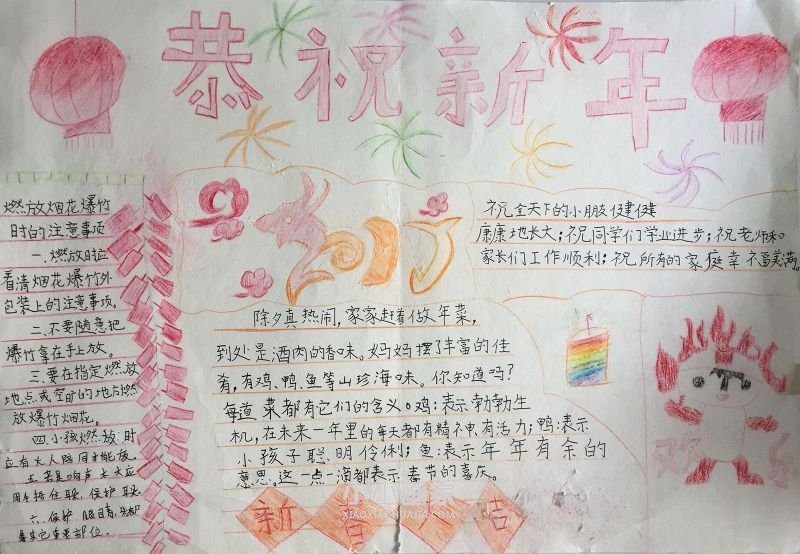 恭祝新年
燃放烟花爆竹
时的注意事项
一.燃放时应
看清烟花爆竹外
包装上的注意事项。
二.不要随意把
爆竹拿在手上放。
三.要在指定燃放
地点或空旷的地方燃
放爆竹烟花。
四.小孩燃放时
应有大人陪同才能放。
五.若是响声太大应
用手捂住耳, 保护耳
六.保护眼睛,头部
等其它重要部位。
2017
祝全天下的小朋健健
康康地长大;祝同学们学业进步;祝老师和
家长们工作顺利;祝所有的家庭幸福美满。
除夕真热闹,家家赶着做年菜,
到处是酒肉的香味。妈妈摆了丰富的佳
肴,有鸡、鸭、鱼等山珍海味。你知道吗?
每道菜都有它们的含义。鸡:表示勃勃生
机,在未来一年里的每天都有精神有活力;鸭:表示
小孩子聪明伶俐;鱼:表示年年有余的
意思。这一点一滴都表示春节的喜庆。
欢乐
新春大吉